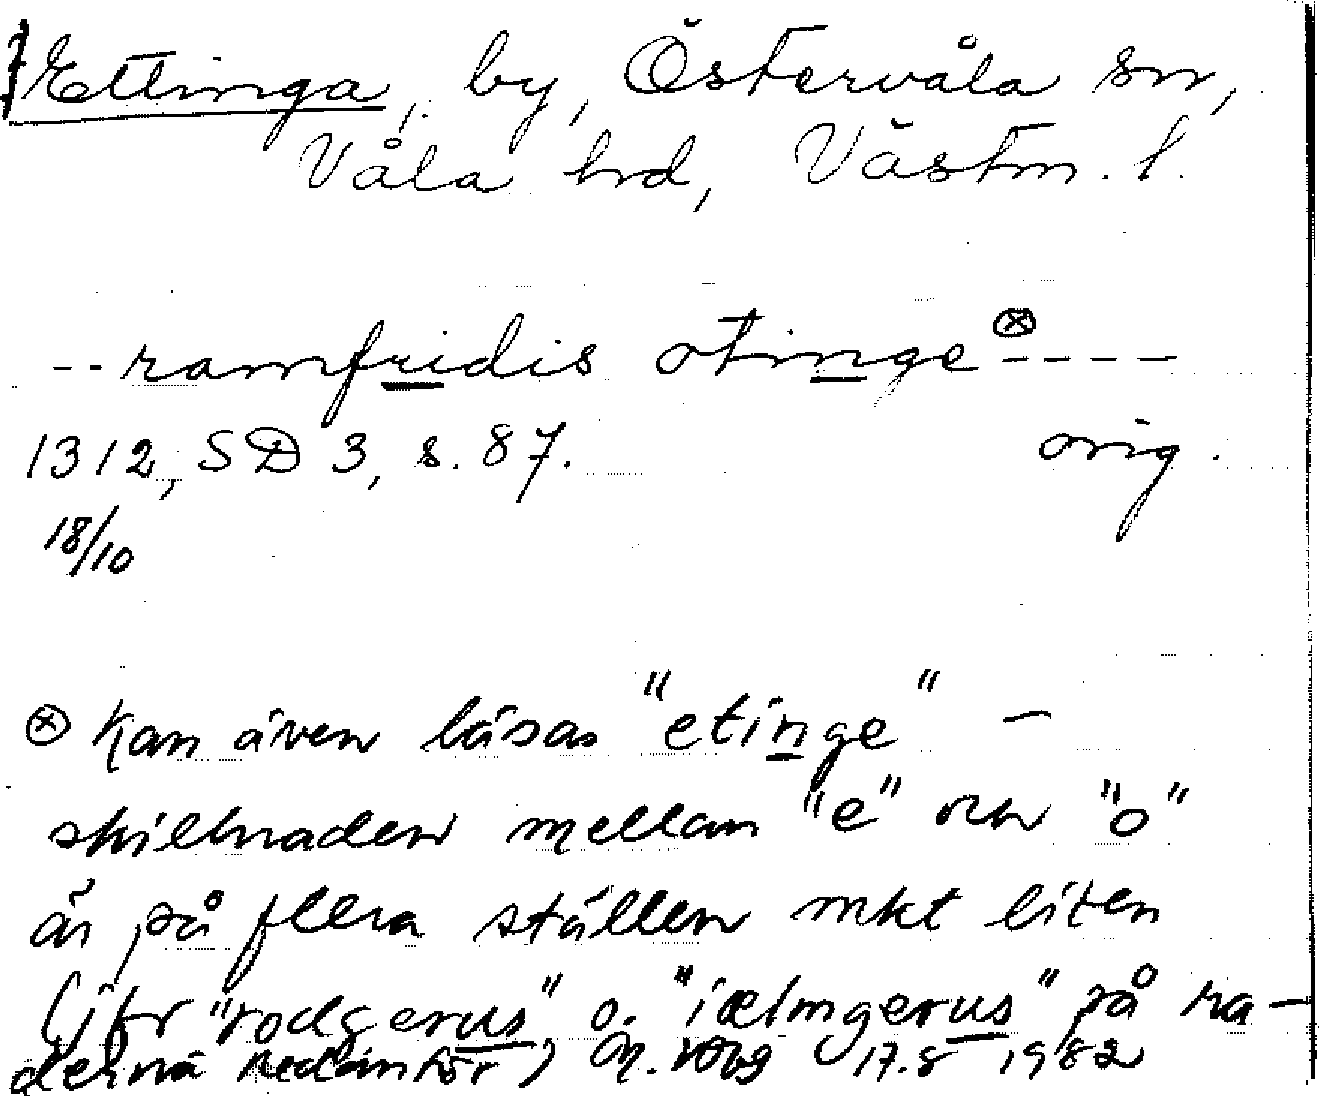 Ettinga, by, Östervåla sn,
Våla hrd, Västm. l.
--ramfridis otinge ⊗ ----
1312, SD 3, s. 87. orig.
18/10
⊗ Kan även läsas "etinge" –
skillnaden mellan "e" och "o"
är på flera ställen mkt liten
(jfr "rodgerus" o. "iælmgerus" på ra-
derna nedanför) 17.8 1982